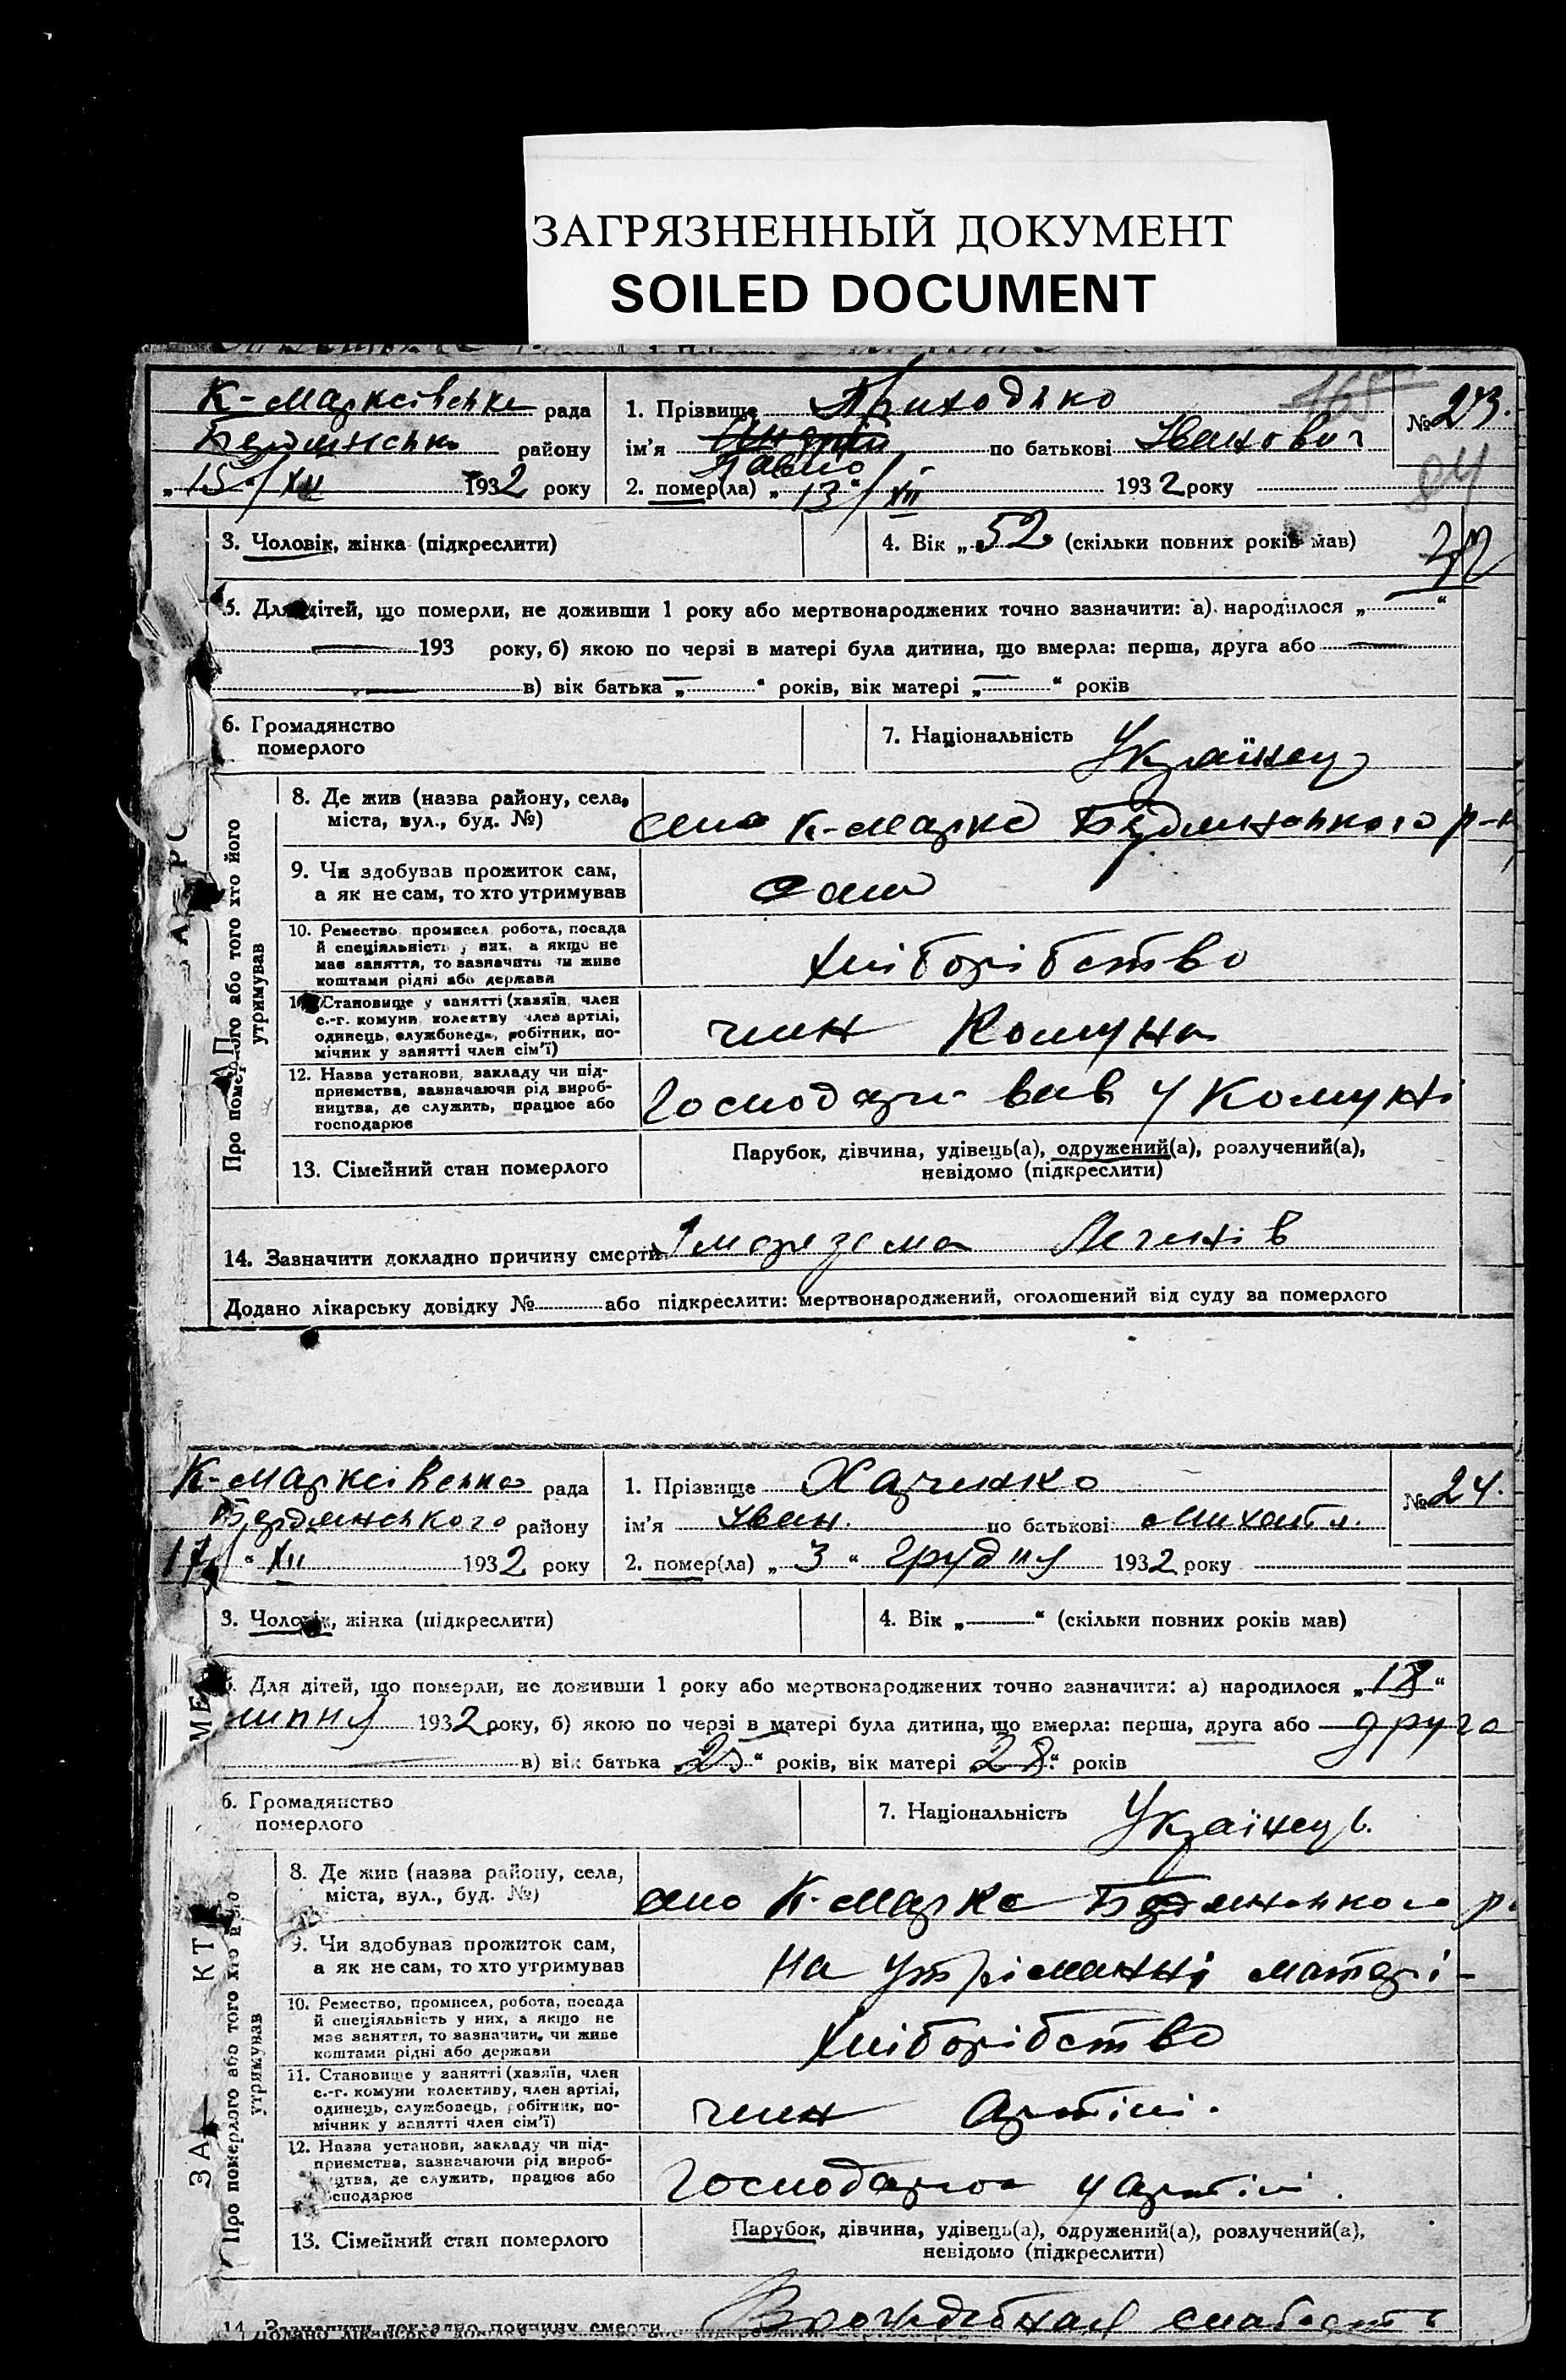 ЗАГРЯЗНЕННЫЙ ДОКУМЕНТ
SOILED DOCUMENT
К-Марксівська рада
Бердянсько району
„15“/XII 1932 року
1. Прізвище Приходько
ім'я Андрій Павло по батькові Іванович
2. помер(ла) „13“/XII 1932 року
168
№ 23.
84
3. Чоловік, жінка (підкреслити)
4. Вік „52“ (скільки повних років мав)
5. Для дітей, що померли, не доживши 1 року або мертвонароджених точно зазначити: а) народилося „ “
193 року, б) якою по черзі в матері була дитина, що вмерла: перша, друга або
в) вік батька „ “ років, вік матері „ “ років
6. Громадянство
померлого
7. Національність Українец
Про померлого або того хто його
утримував
8. Де жив (назва району, села,
міста, вул., буд. №)
село К-Маркс Бердянського р-н
9. Чи здобував прожиток сам,
а як не сам, то хто утримував
сам
10. Ремество, промисел, робота, посада
й спеціяльність у них, а якщо не
має заняття, то зазначити чи живе
коштами рідні або держави
хліборібство
11. Становище у занятті (хазяїн, член
с.-г. комуни, колективу, член артілі,
одинець, службовець, робітник, по-
мічник у занятті член сім'ї)
член Комуни
12. Назва установи, закладу чи під-
приємства, зазначаючи рід вироб-
ництва, де служить, працює або
господарює
Господарював у Комуні
13. Сімейний стан померлого
Парубок, дівчина, удівець(а), одружений(а), розлучений(а),
невідомо (підкреслити)
14. Зазначити докладно причину смерти Легенів
Додано лікарську довідку № або підкреслити: мертвонароджений, оголошений від суду за померлого
К-Марксівська рада
Бердянського району
17/„ “ XII 1932 року
1. Прізвище Харченко
ім'я Іван по батькові Михайл.
2. помер(ла) „3“ грудня 1932 року
№ 24.
3. Чоловік, жінка (підкреслити)
4. Вік „—“ (скільки повних років мав)
5. Для дітей, що померли, не доживши 1 року або мертвонароджених точно зазначити: а) народилося „18“
липня 1932 року, б) якою по черзі в матері була дитина, що вмерла: перша, друга або друга
в) вік батька „25“ років, вік матері „28“ років
6. Громадянство
померлого
7. Національність Українець.
Про померлого або того хто його
утримував
8. Де жив (назва району, села,
міста, вул., буд. №)
село К-Маркс Бердянського р-
9. Чи здобував прожиток сам,
а як не сам, то хто утримував
на утріманні матері-
10. Ремество, промисел, робота, посада
й спеціяльність у них, а якщо не
має заняття, то зазначити, чи живе
коштами рідні або держави
хліборібство
11. Становище у занятті (хазяїн, член
с.-г. комуни колективу, член артілі,
одинець, службовець, робітник, по-
мічник у занятті член сім'ї)
член артілі.
12. Назва установи, закладу чи під-
приємства, зазначаючи рід вироб-
ництва, де служить, працює або
господарює
Господарює у артілі.
13. Сімейний стан померлого
Парубок, дівчина, удівець(а), одружений(а), розлучений(а),
невідомо (підкреслити)
14. Зазначити докладно причину смерти Врождебная слабость